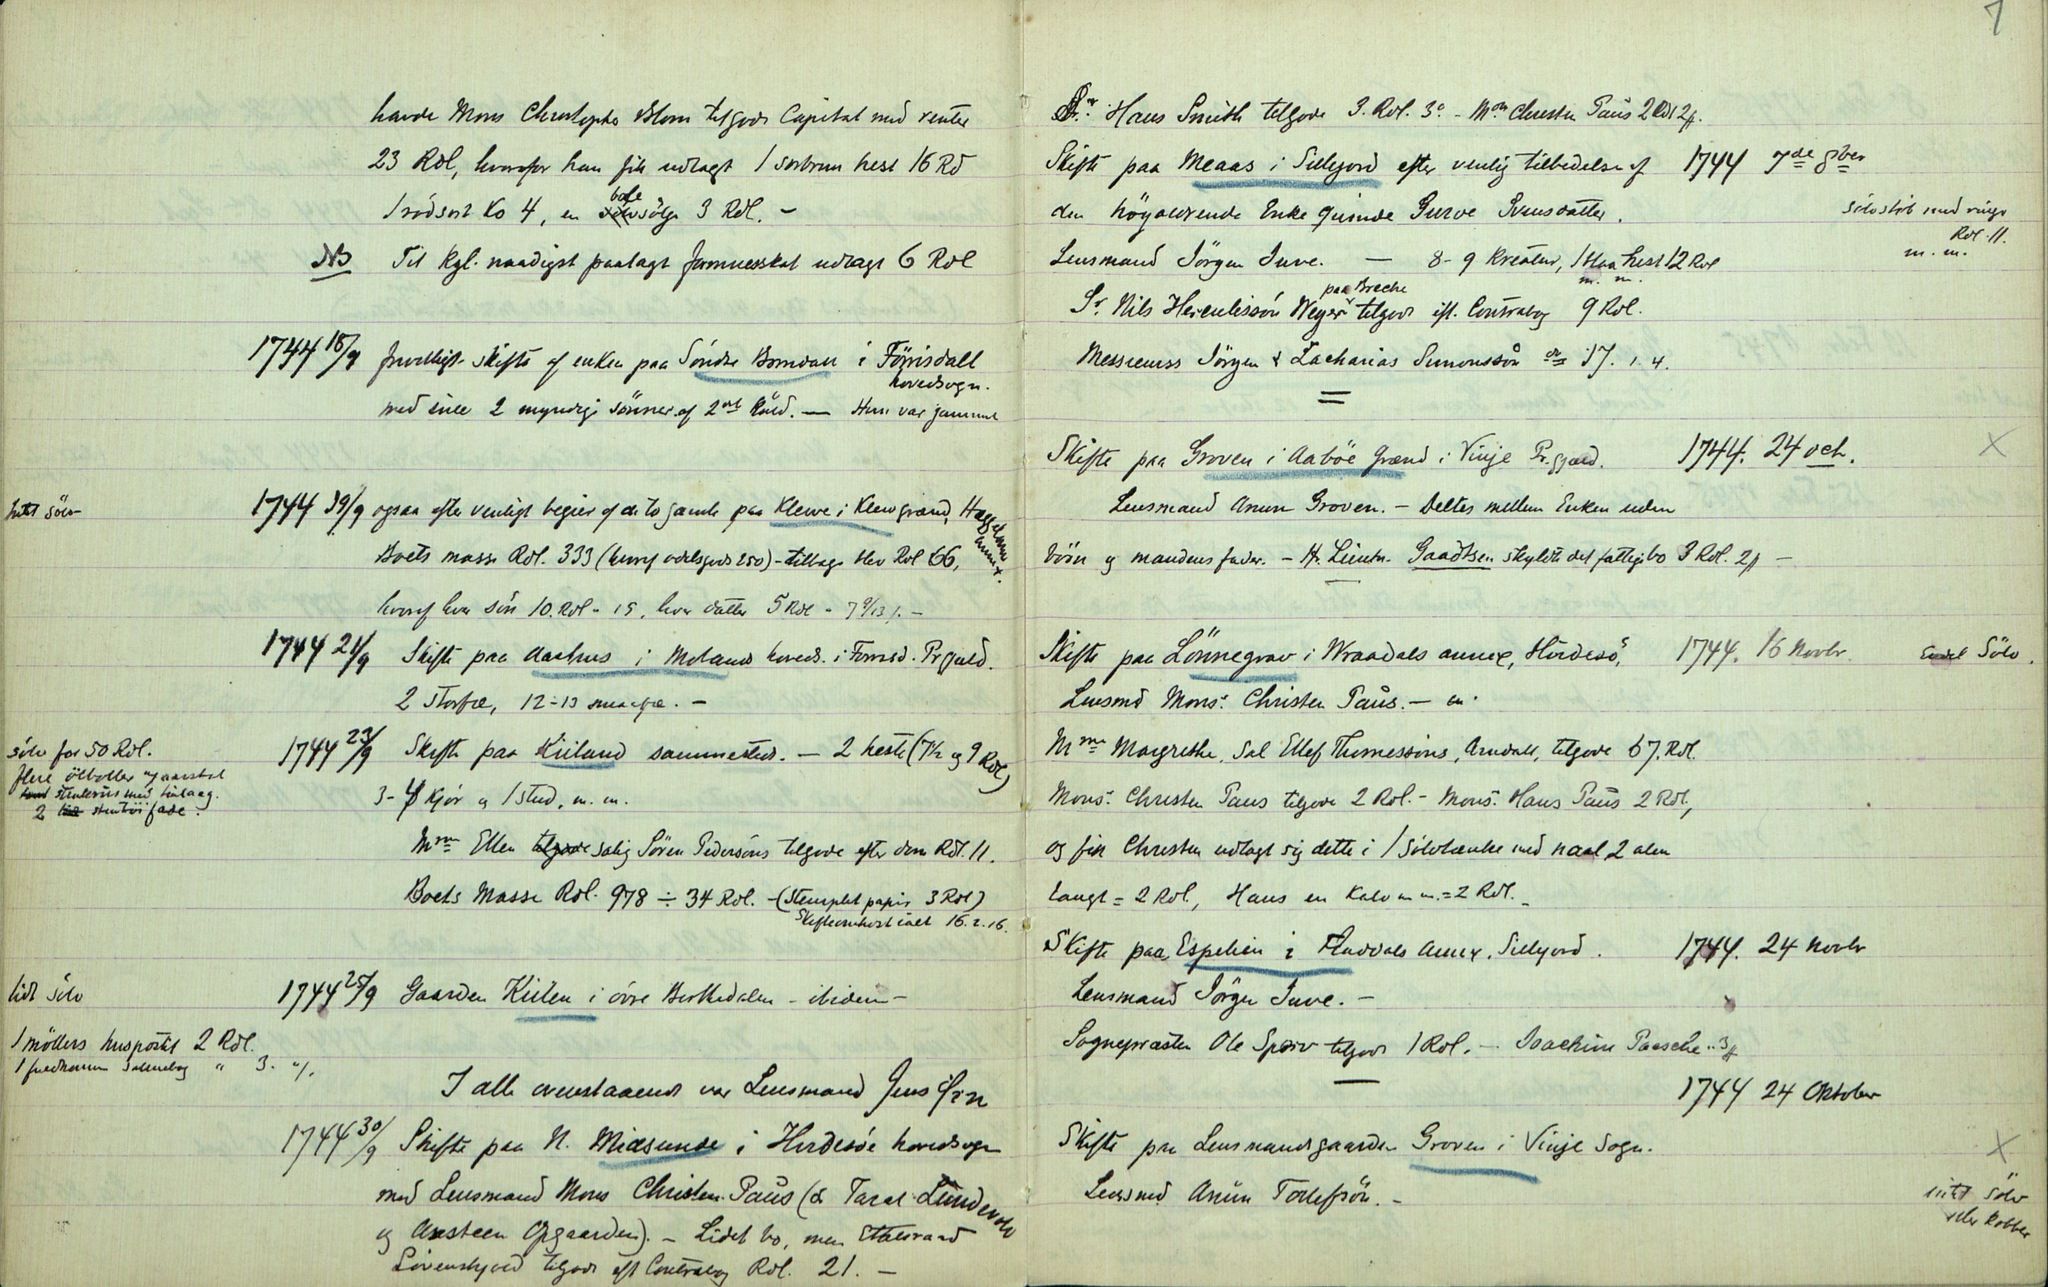 havde Mons Christopher Blom tilgode Capital med renter
23 Rdl, hvorfor han fik udlagt 1 sortbrun hest 16 Rd
1 rødsort Ko 4, en bole sølje 3 Rdl. –
NB Til Kgl. naadigst paalagt formuesskat udlagt 6 Rdl
1744 18/9 skifte af enken paa Söndre Bomdall i Förrisdall
hovedsogn.
med sine 2 myndige sönner af 2det Kuld. — Hun var gammel
Intet sölv
1744 19/9 ogsaa efter venligt begier af de to gamle paa Kleive i Klevgrænd,
annex.
Boets masse Rdl. 333 (hvoraf odelsgods 250) – tilbage blev Rdl 66,
hvoraf hver sön 10. Rdl - 15, hver datter 5 Rdl -
1744 21/9 Skifte paa Aashus i Molands hoveds. i Forrisd. Prgjæld.
2 storfæ, 12-13 smaafæ. –
sölv for 50 Rdl.
flere ölboller og aarstal
stenkrus med tinlaag.
2 stentöifade.
1744 23/9 Skifte paa Kiiland sammesteds. — 2 heste (7½ og 9 Rdl)
3-4 kjör og 1 stud, m. m.
Mme Ellen salig Sören Pedersöns tilgode efter dom Rdl. 11.
Boets Masse Rdl. 978 ÷ 34 Rdl. – (Stemplet papir 3 Rdl)
Skifteomkost ialt 16. 2. 16.
lidt sölv
1744 25/9 Gaarden Kiilen i övre Bothedalen – ibidem –
1 möllers huspostil 2 Rdl.
1 Salmebog " 3.
I alle ovenstaaende var Lensmand Jens
1744 30/9 Skifte paa N. Midsunde i Hvidesöe hovedsogn
med Lensmand Mons Christen Paus (& Taral Lundevold
og Ansteen Opgaarden). – Lidet bo, men Etatsraad
Lövenskjold tilgode eft Contrabog Rdl. 21. –
7
Sr. Hans Smith tilgode 3. Rdl. 3 – Mon Christen Paus 2 Rdl 2
Skifte paa Meaas i Sillejord efter venlig tilbedelse af 1744 7de 8ber
den höyaldrende Enke Quinde Gurve Svensdatter.
sölvstöb med ringe
Rdl. 11.
m. m.
Lensmand Jörgen Juve. — 8-9 kreatur, 1 blaa hest 12 Rdl
m. m.
paa Breche
Sr. Nils Herculessön Weyer tilgode ift. Contrabog 9 Rdl.
Messieurss Jörgen & Zacharias Simonssön 17. 1. 4.
=
Skifte paa Groven i Aaböe Grænd i Vinje Pr.gjæld. 1744. 24 oct.
Lensmand Anun Groven. – Deltes mellem Enken uden
börn og mandens fader. – Hr. Lieutn. Gaadtsen skyldte det fattige bo 3 Rdl. 2 –
Skifte paa Lönnegrav i Wraadals annex, Hvidesö, 1744. 16 Novbr.
Endel Sölv.
Lensmd Mons: Christen Paus. –
Mme Margrethe, Sal Ellef Thomessöns, Arndall, tilgode 67. Rdl.
Mons: Christen Paus tilgode 2 Rdl. – Mons: Hans Paus 2 Rdl,
og fik Christen udlagt sig dette i 1 sölvlænke med naal 2 alen
langt = 2 Rdl, Hans en Kalv m m. = 2 Rdl. –
Skifte paa Espelien i Flaadals Annex. Sillejord. 1744. 24 Novbr
Lensmand Jörgen Juve. –
Sognepræsten Ole Spörv tilgode 1 Rdl. – Joachim Paasche " 3
—
1744 24 Oktober
Skifte paa Lensmandsgaarden Groven i Vinje Sogn.
Lensmd Anun Tollefsön. –
intet Sölv
eller Kobber